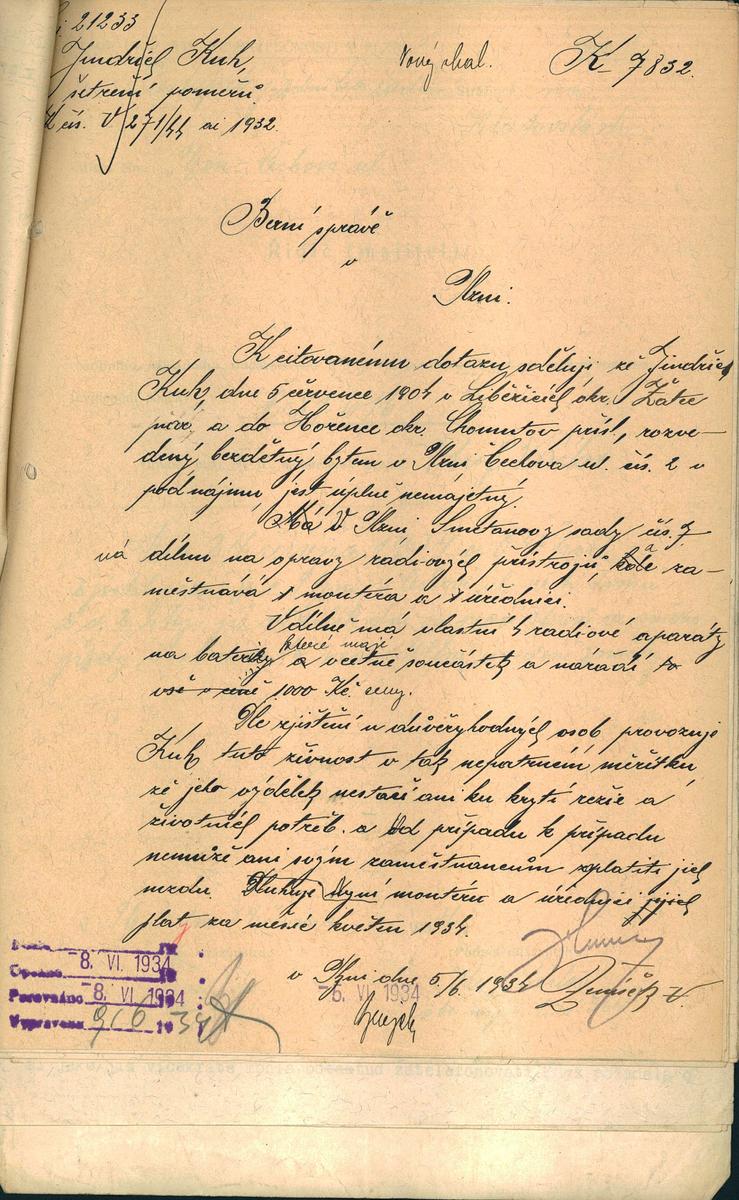 21233
Jindřich Kuh,
šetření poměrů.
K čís. V 271/44 ai 1932.
Nový obal.
K - 7832.
Berní správě
v
Plzni.
K citovanému dotazu sděluji že Jindřich
Kuh, dne 5 července 1904 v Liběšicích okr. Žatec
nar, a do Hořence okr. Chomutov přísl, rozve-
dený, bezdětný bytem v Plzni Čechova ul. čís. 2 v
podnájmu, jest úplně nemajetný.
Má V Plzni Smetanovy sady čís. 7
má dílnu na opravy rádiových přístrojů, kde a za-
městnává 1 montéra a 1 úřednici.
V dílně má vlastní 4 radiové aparáty
na baterky které mají a včetně součástek a nářadí to
vše v ceně 1000 Kč ceny.
Dle zjištění u důvěryhodných osob provozuje
Kuh tuto živnost v tak nepatrném měřítku,
že jeho výdělek nestačí ani ku krytí režie a
životních potřeb. a Od případu k případu
nemůže ani svým zaměstnancům zplatiti jich
mzdu. Dluhuje Nyní montéru a úřednici jejich
plat za měsíc květen 1934.
v Plzni dne 5/6. 1934
-5. VI. 1934
Došlo
Opsáno 8. VI. 1934
Porovnáno 8. VI. 1934
Vypraveno 9/6 1934